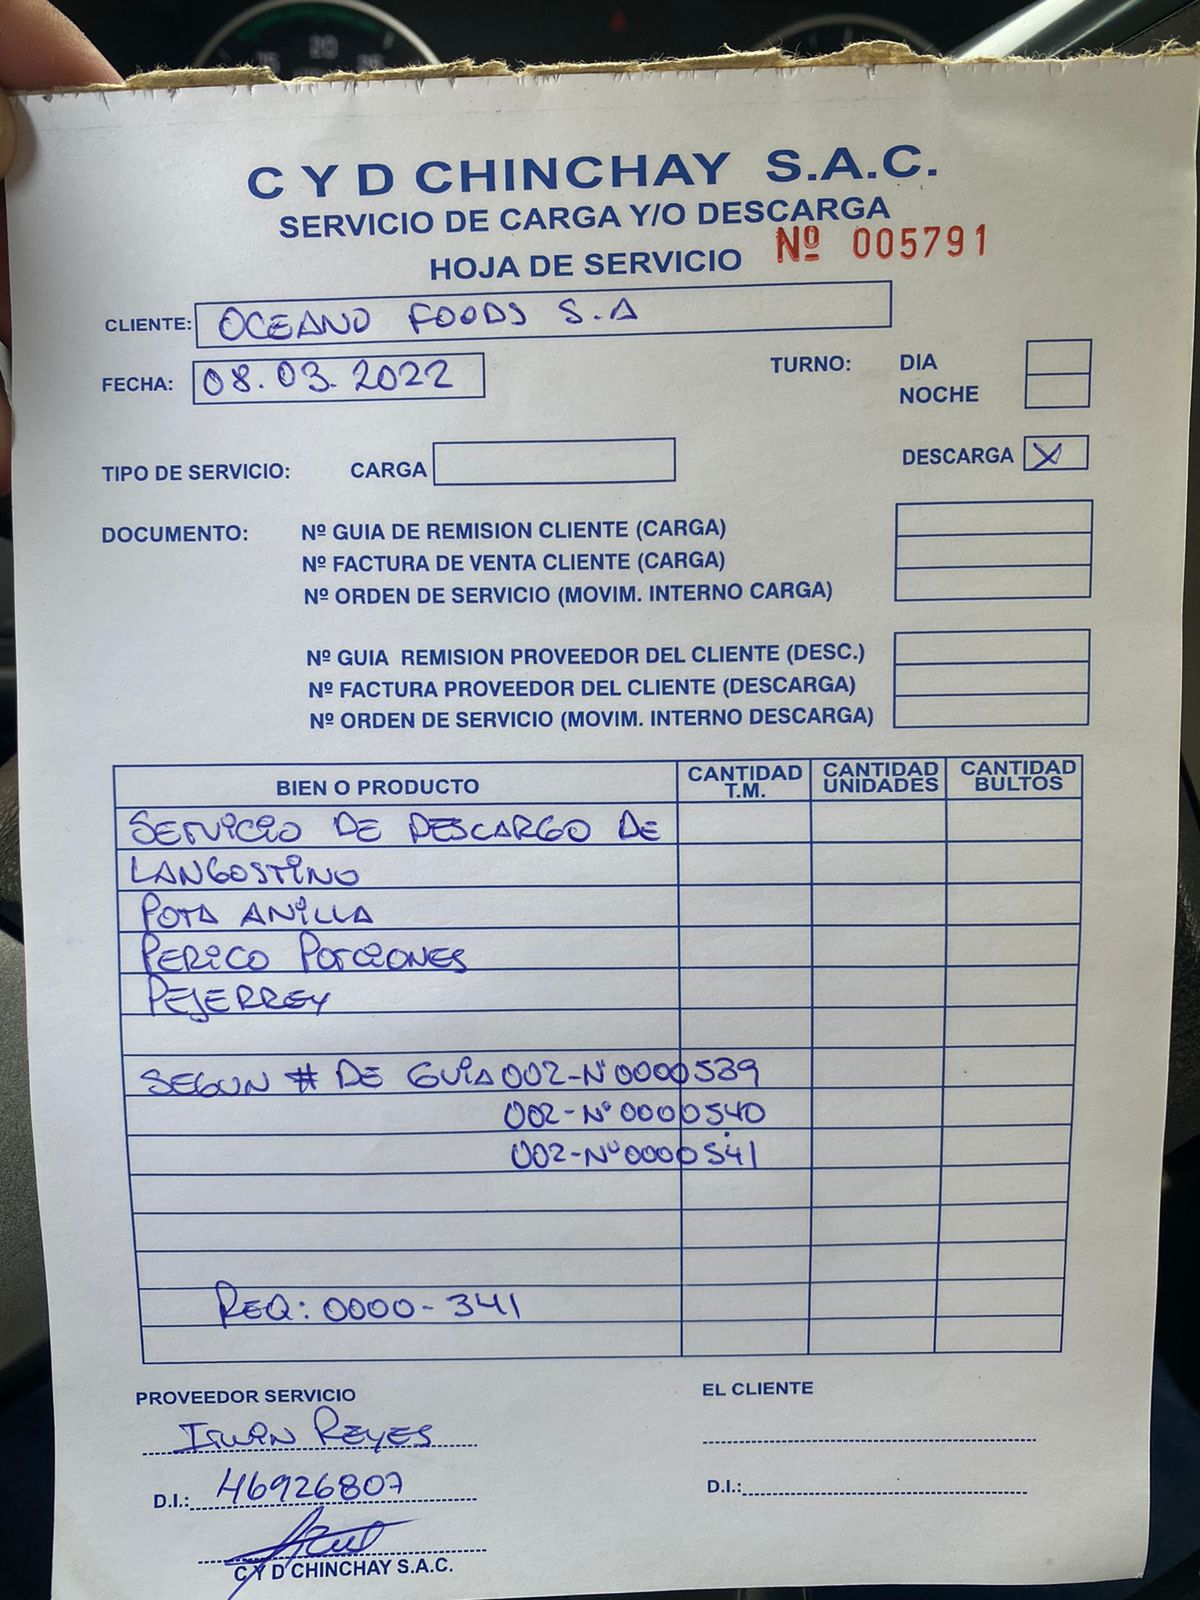 C Y D CHINCHAY S.A.C.
SERVICIO DE CARGA Y/O DESCARGA
HOJA DE SERVICIO Nº 005791
CLIENTE: OCEANO FOODS S.A
FECHA: 08.03.2022
TURNO: DIA
NOCHE
TIPO DE SERVICIO: CARGA DESCARGA X
DOCUMENTO: Nº GUIA DE REMISION CLIENTE (CARGA)
Nº FACTURA DE VENTA CLIENTE (CARGA)
Nº ORDEN DE SERVICIO (MOVIM. INTERNO CARGA)
Nº GUIA REMISION PROVEEDOR DEL CLIENTE (DESC.)
Nº FACTURA PROVEEDOR DEL CLIENTE (DESCARGA)
Nº ORDEN DE SERVICIO (MOVIM. INTERNO DESCARGA)
BIEN O PRODUCTO CANTIDAD T.M. CANTIDAD UNIDADES CANTIDAD BULTOS
SERVICIO DE DESCARGO DE
LANGOSTINO
POTA ANILLA
PERICO PORCIONES
PEJERREY
SEGUN # DE GUIA 002-Nº0000539
002-Nº0000540
002-Nº0000541
REQ: 0000-341
PROVEEDOR SERVICIO EL CLIENTE
IRWIN REYES
D.I.: 46926807 D.I.:
C Y D CHINCHAY S.A.C.